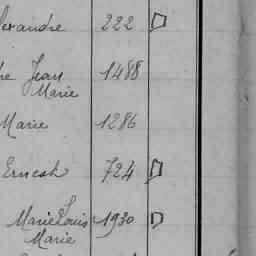 exandre 222 D
he Jean 1488
Marie
Marie 1286
Ernest 724 D
Marie Louis 1930 D
Marie